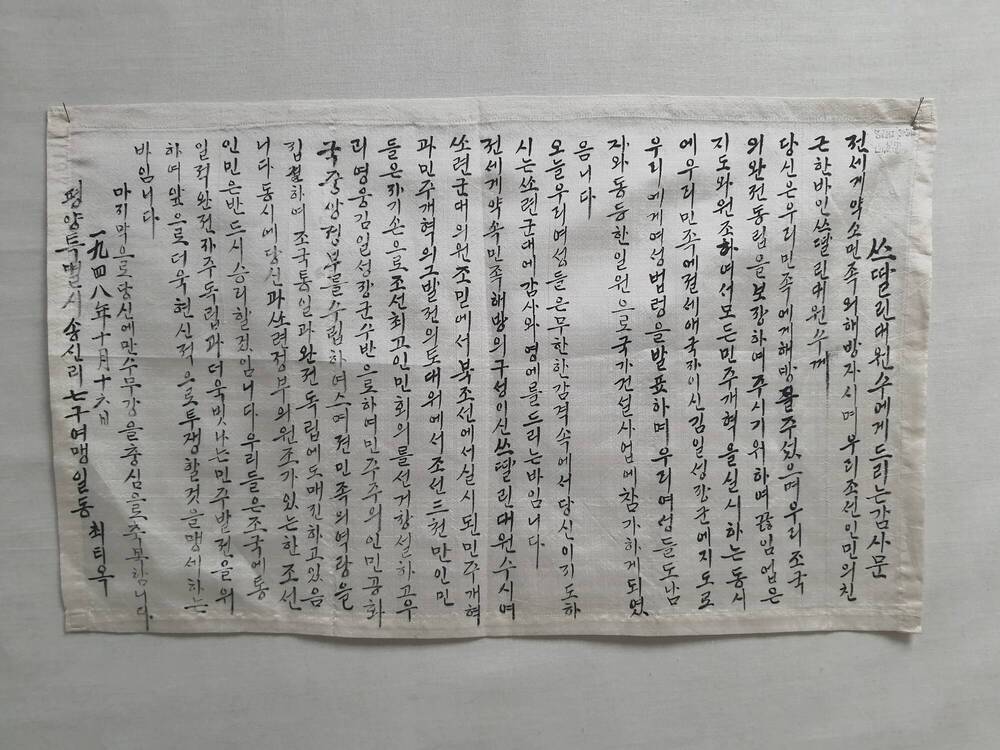 쓰딸린대원수에게드리는감사문
전세계약소민족의해방자시며 우리조선인민의친
근한바인쓰딸린대원수께
당신은우리민족에게해방을주섰으며우리조국
의완전독립을보장하며주시기위하며끊임없은
지도와원조하여서모든민주개혁을실시하는동시
에우리민족에절세애국자이신김일성장군에지도로
우리에게여성법령을발표하며우리여성들도남
자와동등한일원으로국가건설사업에참가하게되였
읍니다
오늘우리여성들은무한한감격속에서당신이지도하
시는쏘련군대에감사와영예를드리는바임니다
전세계약속민족해방의구성이신쓰딸린대원수시여
쏘련군대의원조밑에서북조선에서실시된민주개혁
과민주개혁의그발전의토대위에서조선三천만인민
들은자기손으로조선최고인민회의를선거창설하고우
리영웅김일성장군수반으로하며민주주의인민공화
국중앙정부를수립하여스며전민족의역량을
집결하며조국통일과완전독립에도매진하고있음
니다동시에당신과쏘련정부의원조가있는한조선
인민은반드시승리할것임니다 우리들은조국에통
일과완전자주독립과더욱빗나는민주발전을위
하며앞으로더욱헌신적으로투쟁할것을맹세하는
바임니다
마지막으로당신에만수무강을충심을로축복합니다.
一九四八年十月十六日
평양특별시송신리七구여맹일동 최티옥